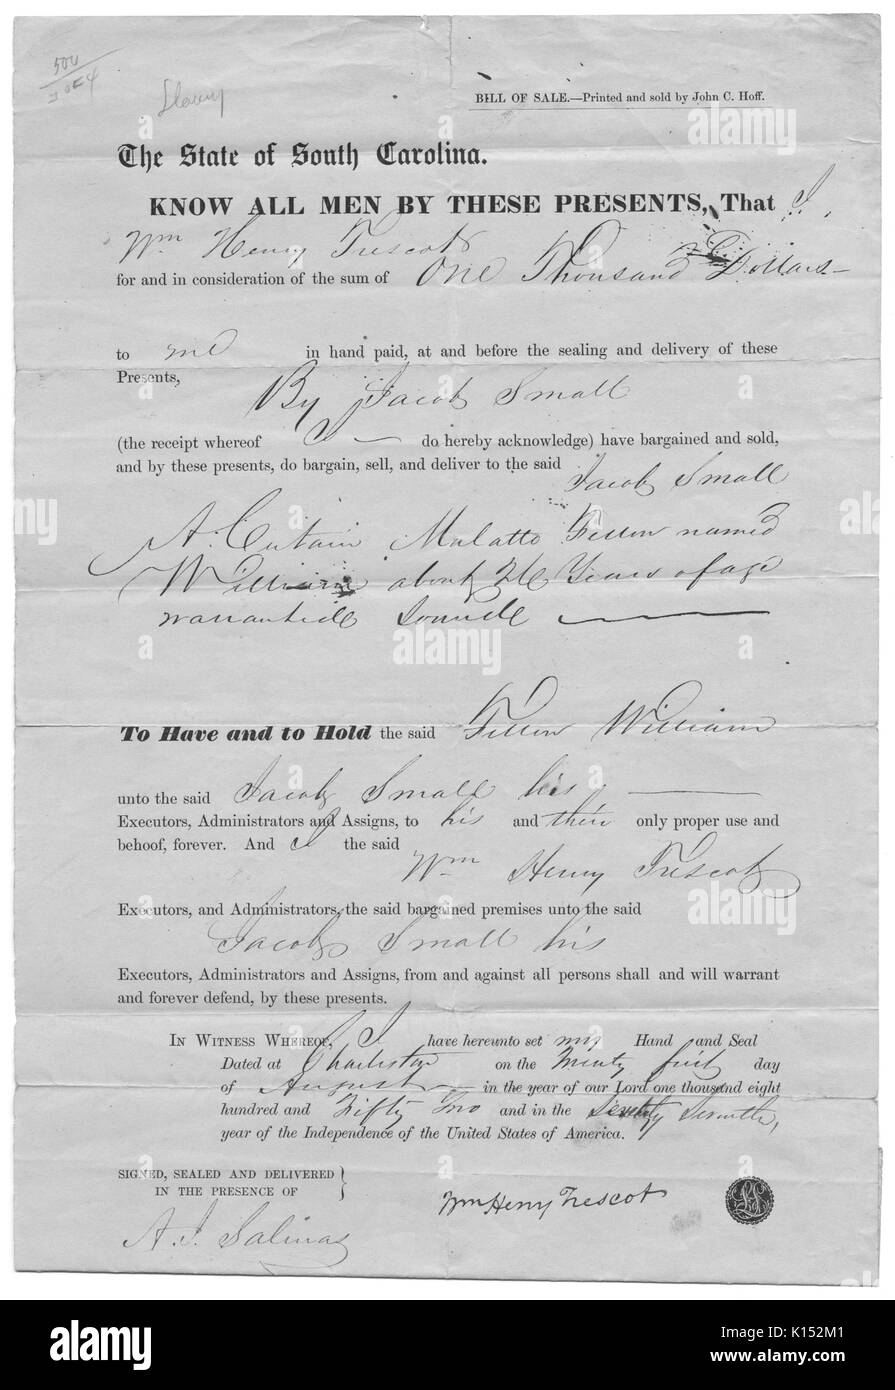 500
Slavery
BILL OF SALE.—Printed and sold by John C. Hoff.
The State of South Carolina.
KNOW ALL MEN BY THESE PRESENTS, That I,
Wm Henry Trescot
for and in consideration of the sum of One Thousand Dollars—
to me in hand paid, at and before the sealing and delivery of these
Presents,
By Jacob Small
(the receipt whereof I — do hereby acknowledge) have bargained and sold,
and by these presents, do bargain, sell, and deliver to the said
Jacob Small
A Certain Malatto Fellow named
William about Years of age
warranted Sound
To Have and to Hold the said Fellow William
unto the said Jacob Small his
Executors, Administrators and Assigns, to his and their only proper use and
behoof, forever. And I the said
Wm Henry Trescot
Executors, and Administrators, the said bargained premises unto the said
Jacob Small his
Executors, Administrators and Assigns, from and against all persons shall and will warrant
and forever defend, by these presents.
IN WITNESS WHEREOF, I have hereunto set my Hand and Seal
Dated at Charleston on the Twenty first day
of August in the year of our Lord one thousand eight
hundred and Fifty Two and in the Seventy Seventh,
year of the Independence of the United States of America.
SIGNED, SEALED AND DELIVERED }
IN THE PRESENCE OF
Wm Henry Trescot
LS
A. J. Salinas
alamy
Image ID: K152M1
www.alamy.com